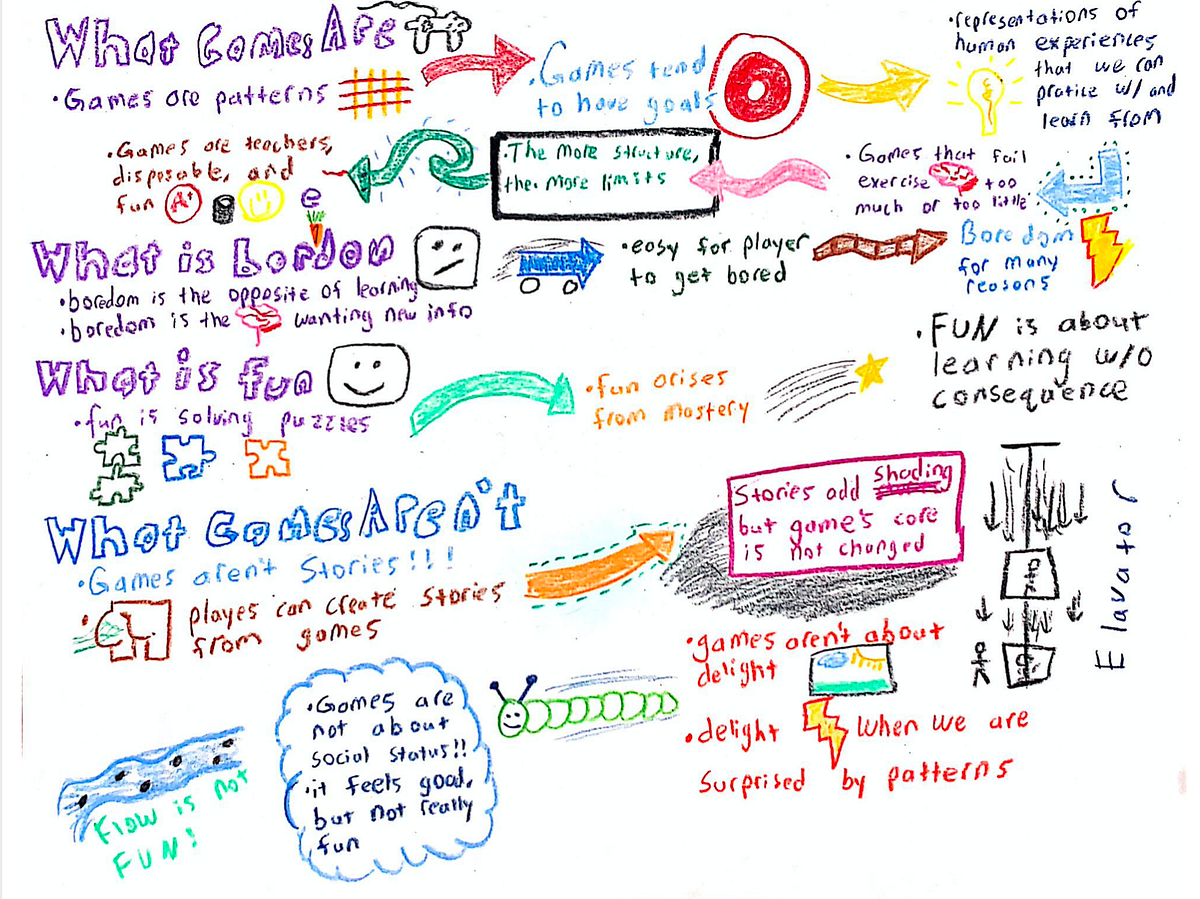 What Games Are
• Games are patterns
• Games tend
to have goals
• representations of
human experiences
that we can
pratice w/ and
learn from
• Games that fail
exercise too
much or too little
• The more structure,
the more limits
• Games are teachers,
disposable, and
fun A+
e
What is Bordon
• boredom is the opposite of learning
• boredom is the wanting new info
• easy for player
to get bored
Boredom
for many
reasons
What is fun
• fun is solving puzzles
• fun arises
from mastery
• FUN is about
learning w/o
consequence
What Games Aren't
• Games aren't Stories!!!
• playes can create stories
from games
Stories add shading
but game's core
is not changed
Elavator
• games aren't about
delight
• delight when we are
Surprised by patterns
• Games are
not about
social status!!
• it feels good,
but not really
fun
Flow is not
FUN!